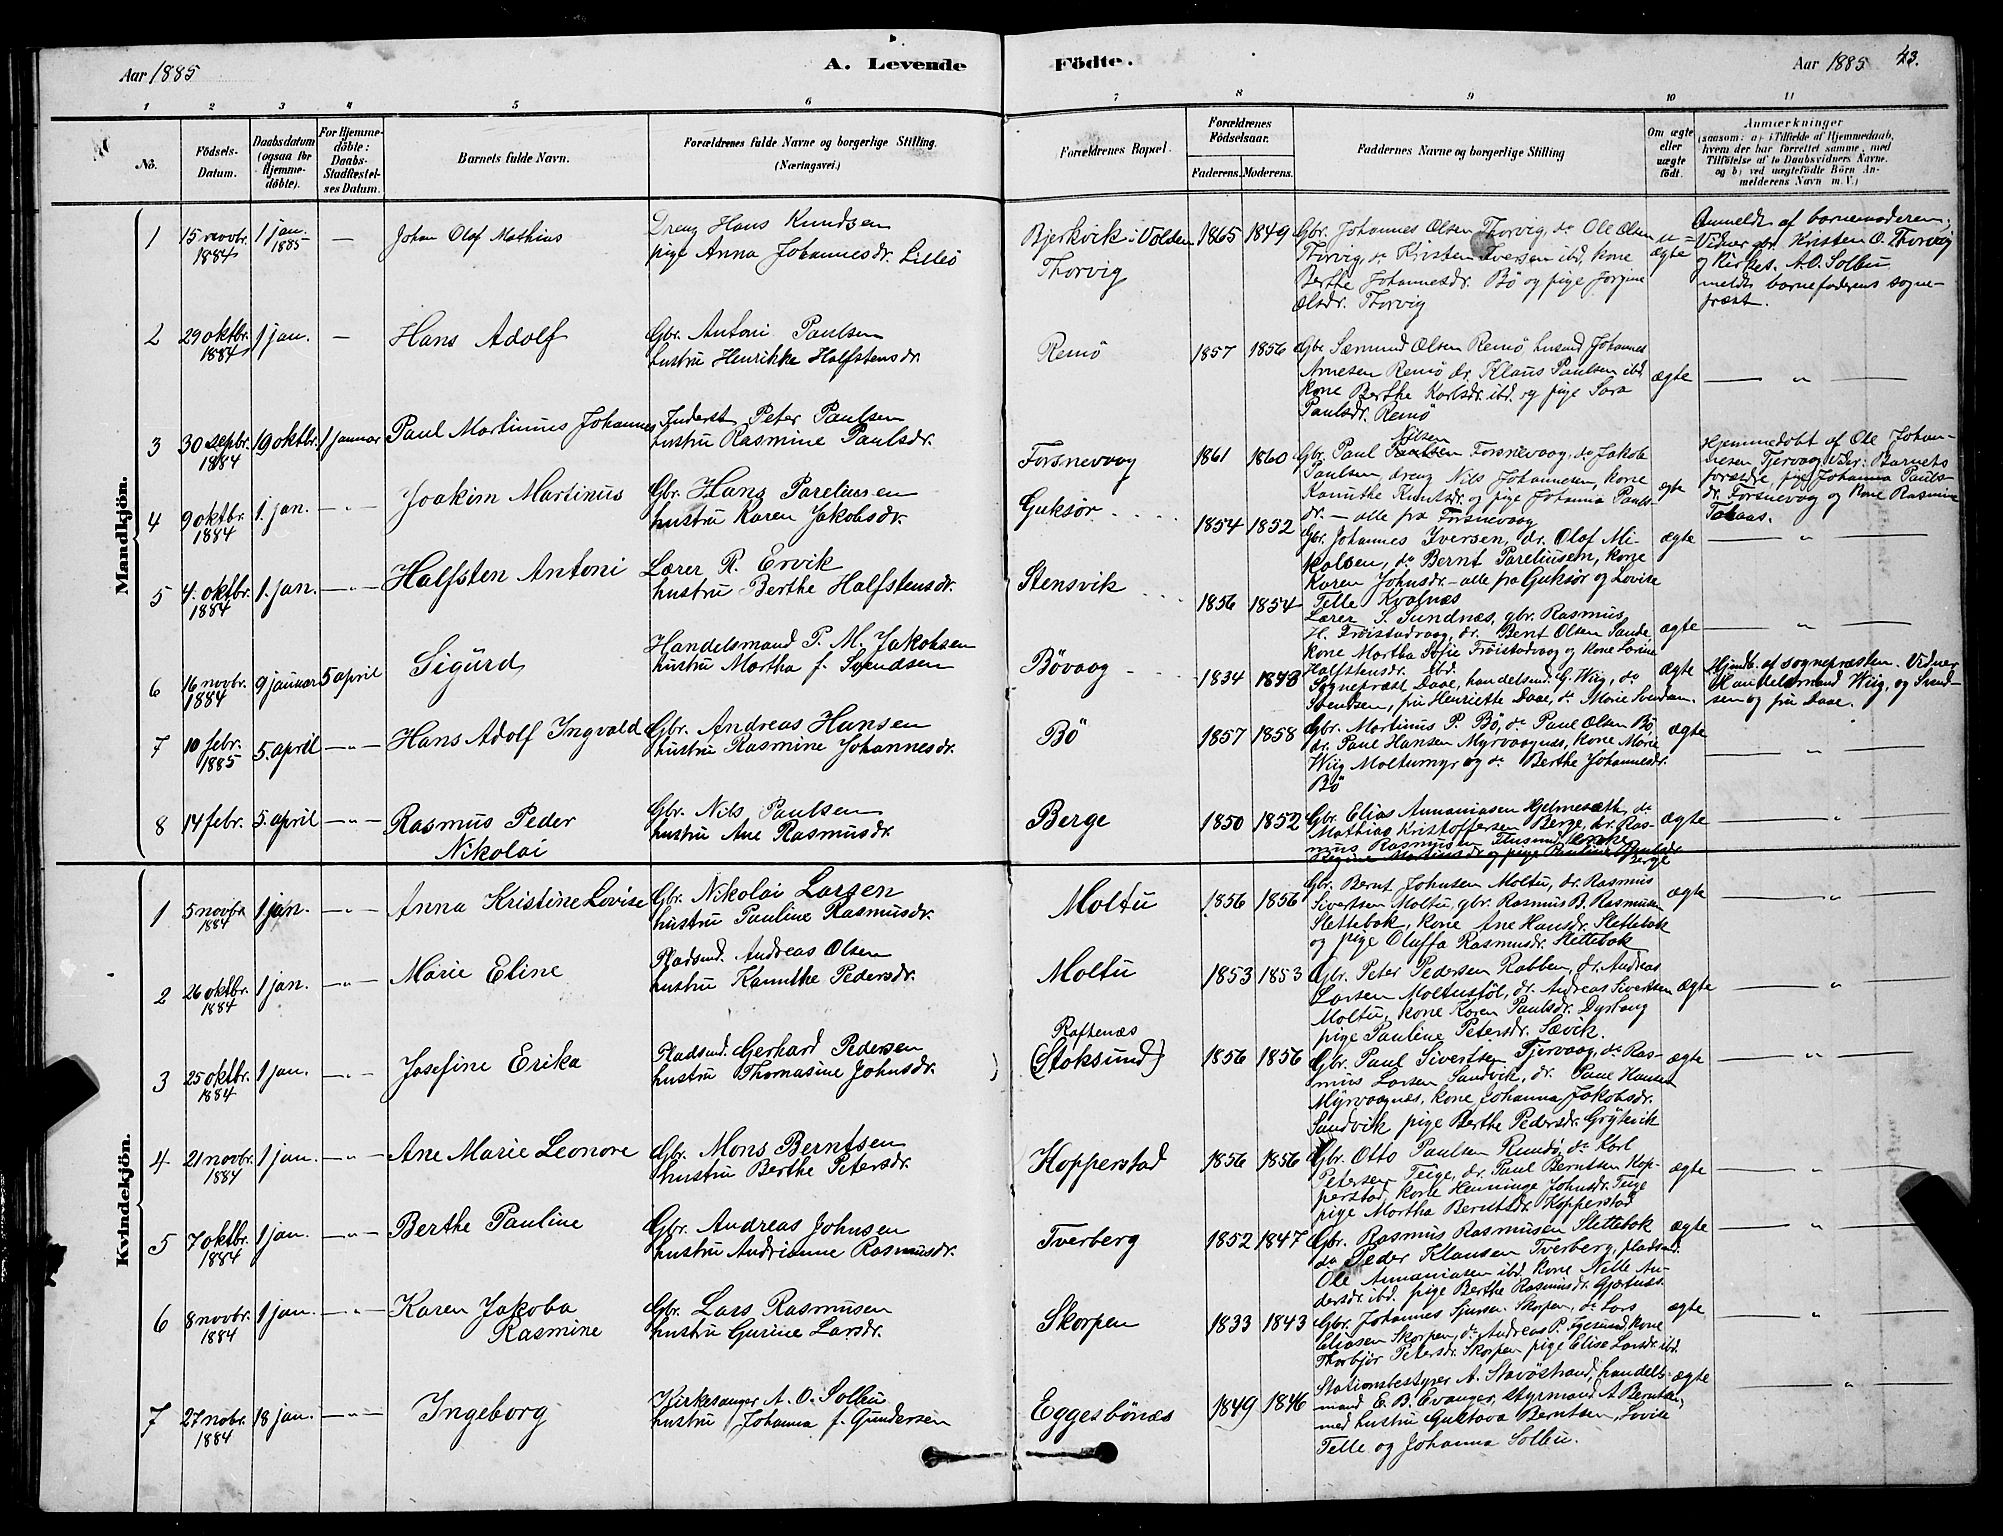 Aar 1885
A. Levende
Födte.
Aar 1885
43.
1 2 3 4 5 6 7 8 9 10 11
No.
Födsels-
Datum.
Daabsdatum
(ogsaa for
Hjemme-
döbte).
For Hjemme-
döbte:
Daabs-
Stadfæstel-
ses Datum.
Barnets fulde Navn.
Forældrenes fulde Navne og borgerlige Stilling.
(Næringsvei.)
Forældrenes Bopæl.
Forældrenes
Födselsaar.
Faderens. Moderens.
Faddernes Navne og borgerlige Stilling
Om ægte
eller
uægte
født.
Anmærkninger
(saasom: a) i Tilfælde af Hjemmedaab,
hvem der har forrettet samme, med
Tilföielse af to Daabsvidners Navne.
og b) ved uægtefödte Börn An-
melderens Navn m. V.)
Mandkjön.
1 15 novbr. 1884 1 jan. 1885 — Johan Olaf Mathias
Dreng Hans Knudsen
pige Anna Johannesdr. Lilleö
Bjerkvik i Volden
Thorvig
1865 1849
Gbr. Johannes Olsen Thorvig, do Ole Olsen
Thorvig, do Kristen Iversen ibd, kone
Berthe Johannesdr. Bö og pige Jørgine
Olsdr. Thorvig
u-
ægte
Anmeldt af barnemoderen,
Vidner gbr. Kristen O. Thorvig
og Kirkes. A. O. Solbu
meldt barnefaderens sogne-
præst.
2 29 oktbr. 1884 1 jan. — Hans Adolf
Gbr. Antoni Paulsen
hustru Henrikke Halfstensdr.
Remö
1857 1856
Gbr. Sæmund Olsen Remö, husmd Johannes
Arnesen Remö dr. Klaus Paulsen ibd.
kone Berthe Karlsdr. ibd. og pige Sara
Paulsdr. Remö
ægte
— „ —
3 30 septbr. 1884 19 oktbr. 1 januar Paul Martinus Johannes
Inderst Peter Paulsen
hustru Rasmine Paulsdr.
Forsnevaag
1861 1860
Nilsen
Gbr. Paul Paulsen Forsnevaag, do Jakob
Paulsen, dreng Nils Johannesen, kone
Kanuthe Knutsdr. og pige Johanna Pauls-
dr. — alle fra Forsnevaag
ægte
Hjemmedøbt af Ole Johan-
nesen Tjervaag. Vidr: Barnets
forældre, pige Johanna Pauls-
dr. Forsnevaag og kone Rasmine
4 9 oktbr. 1884 1. jan. — „ — Joakim Martinus
Gbr. Hans Pareliusen
hustru Karen Jakobsdr.
Guksør
1854 1852
Gbr. Johannes Iversen, dr. Olaf Mi-
kalsen, do Bernt Pareliusen, kone
Karen Johnsdr. — alle fra Guksør og Lovise
Telle Kvalnæs
ægte
— „ —
5 4. oktbr. 1884 1. jan. — „ — Halfsten Antoni
Lærer R. Ervik
hustru Berthe Halfstensdr.
Stensvik
1856 1854
Lærer S. Sundnæs, gbr. Rasmus
H. Frøistadvaag, dr. Bent Olsen Sande,
kone Martha Sofie Frøistadvaag og kone Larine
Halfstensdr. ibd.
ægte
— „ —
6 16 novbr. 1884 9 januar 5 april Sigurd
Handelsmand P. M. Jakobsen
hustru Martha f. Svendsen
Bövaag
1834 1848
Sognepræst Daae, handelsmd. G. Wiig, do
Svendsen, fru Henriette Daae, do Marie Svendsen
ægte
Hjmdt. af sognepræsten. Vidner
Handelsmand Wiig, og Svend-
sen og fru Daae.
7 10 febr. 1885 5. april — „ — Hans Adolf Ingvald
Gbr. Andreas Hansen
hustru Rasmine Johannesdr.
Bö
1857 1858
Gbr. Martinus P. Bö, do Paul Olsen Bö,
dr. Paul Hansen Myrvaagnæs, kone Marie
Wiig Moltumyr og do Berthe Johannesdr.
Bö
ægte
— „ —
8 14 febr. 5. april — „ — Rasmus Peder
Nikolai
Gbr. Nils Paulsen
hustru Ane Rasmusdr.
Berge
1850 1852
Gbr. Elias Annaniasen Hjelmesæth, do
Mathias Kristoffersen Berge, dr. Ras-
mus Rasmusen
Berge
ægte
— „ —
Kvindekjön.
1 5 novbr 1884 1 jan. — „ — Anna Kristine Lovise
Gbr. Nikolai Larsen
hustru Pauline Rasmusdr.
Moltu
1856 1856
Gbr. Bernt Johnsen Moltu, dr. Rasmus
Sivertsen Moltu, gbr. Rasmus B. Rasmusen
Slettebak, kone Ane Hansdr. Slettebak
og pige Oluffa Rasmusdr. Slettebak
ægte
— „ —
2 26 oktbr. 1884 1 jan. — „ — Marie Eline
Pladsmd. Andreas Olsen
hustru Kanutke Pedersdr.
Moltu
1853 1853
Gbr. Peter Pedersen Rabben, dr. Andreas
Larsen Moltustöl, dr. Andreas Sivertsen
Moltu, kone Karen Paulsdr. Dysvang
pige Pauline Petersdr. Sævik.
ægte
— „ —
3 25 oktbr. 1884 1 jan. — „ — Josefine Erika
Pladsmd. Gerhard Pedersen
hustru Thomasine Johnsdr.
Raftenæs
(Stoksund)
1856 1856
Gbr. Paul Sivertsen Tjervaag, do Ras-
mus Larsen Sandvik, dr. Paul Hansen
Myrvaagnæs, kone Johanna Jakobsdr.
Sandvik pige Berthe Pedersdr. Grytevik
ægte
— „ —
4 21 novbr. 1884 1 jan. — „ — Ane Marie Leonore
Gbr. Mons Berntsen
hustru Berthe Petersdr.
Kopperstad
1856 1856
Gbr. Otto Paulsen Rundö, do Karl
Petersen Teige, dr. Paul Berntsen Kop-
perstad, kone Henninge Johnsdr. Teige
pige Martha Berntsdr. Kopperstad
ægte
— „ —
5 7 oktbr. 1884 1 jan. — „ — Berthe Pauline
Gbr. Andreas Johnsen
hustru Andrianne Rasmusdr.
Tverberg
1852 1847
Gbr. Rasmus Rasmusen Slettebak
do Peder Klausen Tverberg, pladsmd.
Ole Annaniasen ibd. kone Nelle An-
dersdr. ibd. pige Berthe Rasmusdr. Gjærtnæs.
ægte
— „ —
6 8 novbr. 1884 1 jan. — „ — Karen Jakoba
Rasmine
Gbr. Lars Rasmusen
hustru Gurine Larsdr.
Skorpen
1833 1843
Gbr. Johannes Sjursen Skorpen, do Lars
Eliasen Skorpen, do Andreas P. Igesund, kone
Thorbjør Petersdr. Skorpen pige Elise Larsdr. ibd.
ægte
— „ —
7 27 nobr. 1884 18 jan. — „ — Ingeborg
Kirkesanger A. O. Solbu
hustru Johanna f. Gundersen
Eggesbönæs
1849 1846
Stationsbestyrer A. Stavöstrand, handels-
mand E. B. Evanger, styrmand A. Berntsen,
med hustru Gustava Berntsen, Lovise
Telle og Johanna Solbu.
ægte
— „ —